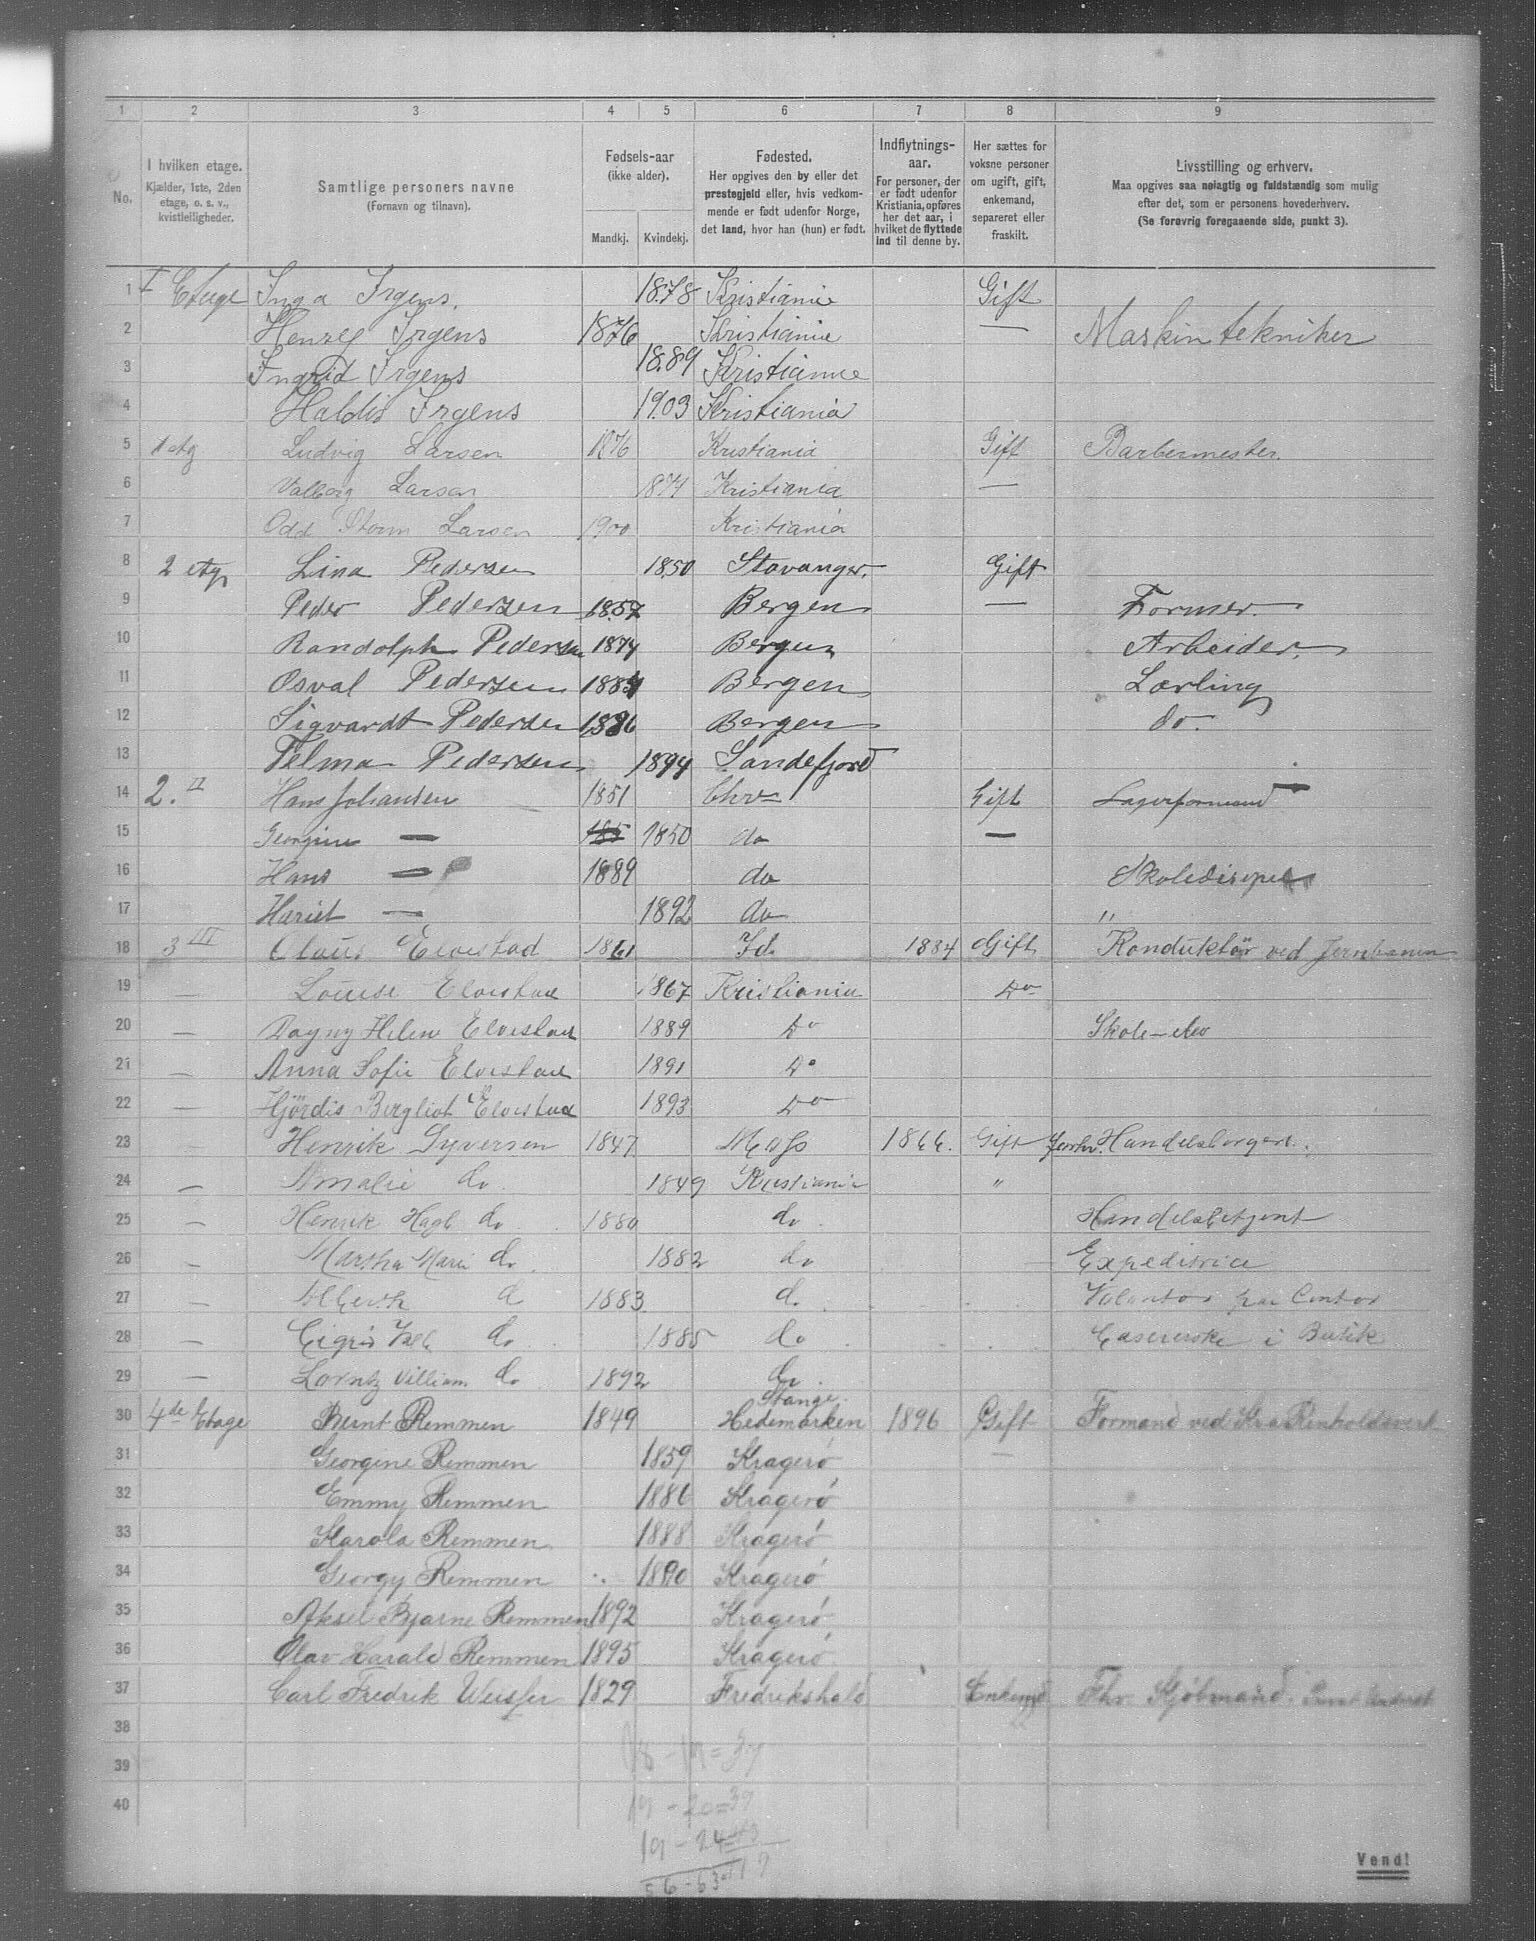 1 2 3 4 5 6 7 8 9
No.
I hvilken etage.
Kjælder, 1ste, 2den
etage, o. s. v.,
kvistleiligheder.
Samtlige personers navne
(Fornavn og tilnavn).
Fødsels-aar
(ikke alder).
Mandkj. Kvindekj.
Fødested.
Her opgives den by eller det
prestegjeld eller, hvis vedkom-
mende er født udenfor Norge,
det land, hvor han (hun) er født.
Indflytnings-
aar.
For personer, der
er født udenfor
Kristiania, opføres
her det aar, i
hvilket de flyttede
ind til denne by.
Her sættes for
voksne personer
om ugift, gift,
enkemand,
separeret eller
fraskilt.
Livsstilling og erhverv.
Maa opgives saa nøiagtig og fuldstændig som mulig
efter det, som er personens hovederhverv.
(Se forøvrig foregaaende side, punkt 3).
1 I Etage Inga Irgens. 1878 Kristiania Gift
2 Henry Irgens 1876 Kristiania — Maskintekniker
3 Ingrid Irgens 1889 Kristiania
4 Haldis Irgens 1903 Kristiania
5 1 Etg Ludvig Larsen 1876 Kristiania Gift Barbermester.
6 Valborg Larsen 1874 Kristiania —
7 Odd Storm Larsen 1900 Kristiania
8 2 Etg Lina Pedersen 1850 Stavanger. Gift
9 Peder Pedersen 1857 Bergen — Former.
10 Randolph Pedersen 1874 Bergen Arbeider.
11 Osval Pedersen 1884 Bergen Lærling
12 Sigvardt Pedersen 1886 Bergen do.
13 Telma Pedersen 1894 Sandefjord
14 2. II Hans Johansen 1851 Chra Gift Lagerformand
15 Georgine — 185 1850 do —
16 Hans — 1889 do Skoledisipel
17 Hariet — 1892 do "
18 3 III Claus Eloestad 1861 Id. 1884 Gift Konduktör ved Jernbanen
19 — Louise Eloestad 1867 Kristiania Do
20 — Dagny Helene Eloestad 1889 Do Skole-elev
21 — Anna Sofie Eloestad 1891 Do
22 — Hjørdis Bergliot Eloestad 1893 Do
23 Henrik Syversen 1847 Moss 1866. Gift forhv. Handelsborger.
24 — Amalie do. 1849 Kristiania "
25 — Henrik Hagb. do 1880 do. Handelsbetjent
26 — Martha Marie do. 1882 do Expeditrice
27 — Albert do 1883 do. Volontør paa Contor
28 — Sigrid Valb. do 1885 do Kassererske i Butik
29 — Lorntz Villiam do 1892 do.
30 4de Etage Bernt Remmen 1849 Stange. Hedemarken 1896 Gift Formand ved Kra Renholdsverk
31 Georgine Remmen 1859 Kragerö —
32 Emmy Remmen 1886 Kragerö
33 Harola Remmen 1888 Kragerö
34 Georgy Remmen 1890 Kragerö
35 Aksel Bjarne Remmen 1892 Kragerö
36 Olav Harald Remmen 1895 Kragerö
37 Carl Fredrik Weisser 1829 Fredrikshald Enkemd Fhv. Kjøbmand.
38
39
40
18 - 19 = 37
19 - 20 = 39
19 - 24 = 43
56 - 63 = 119
Vend!